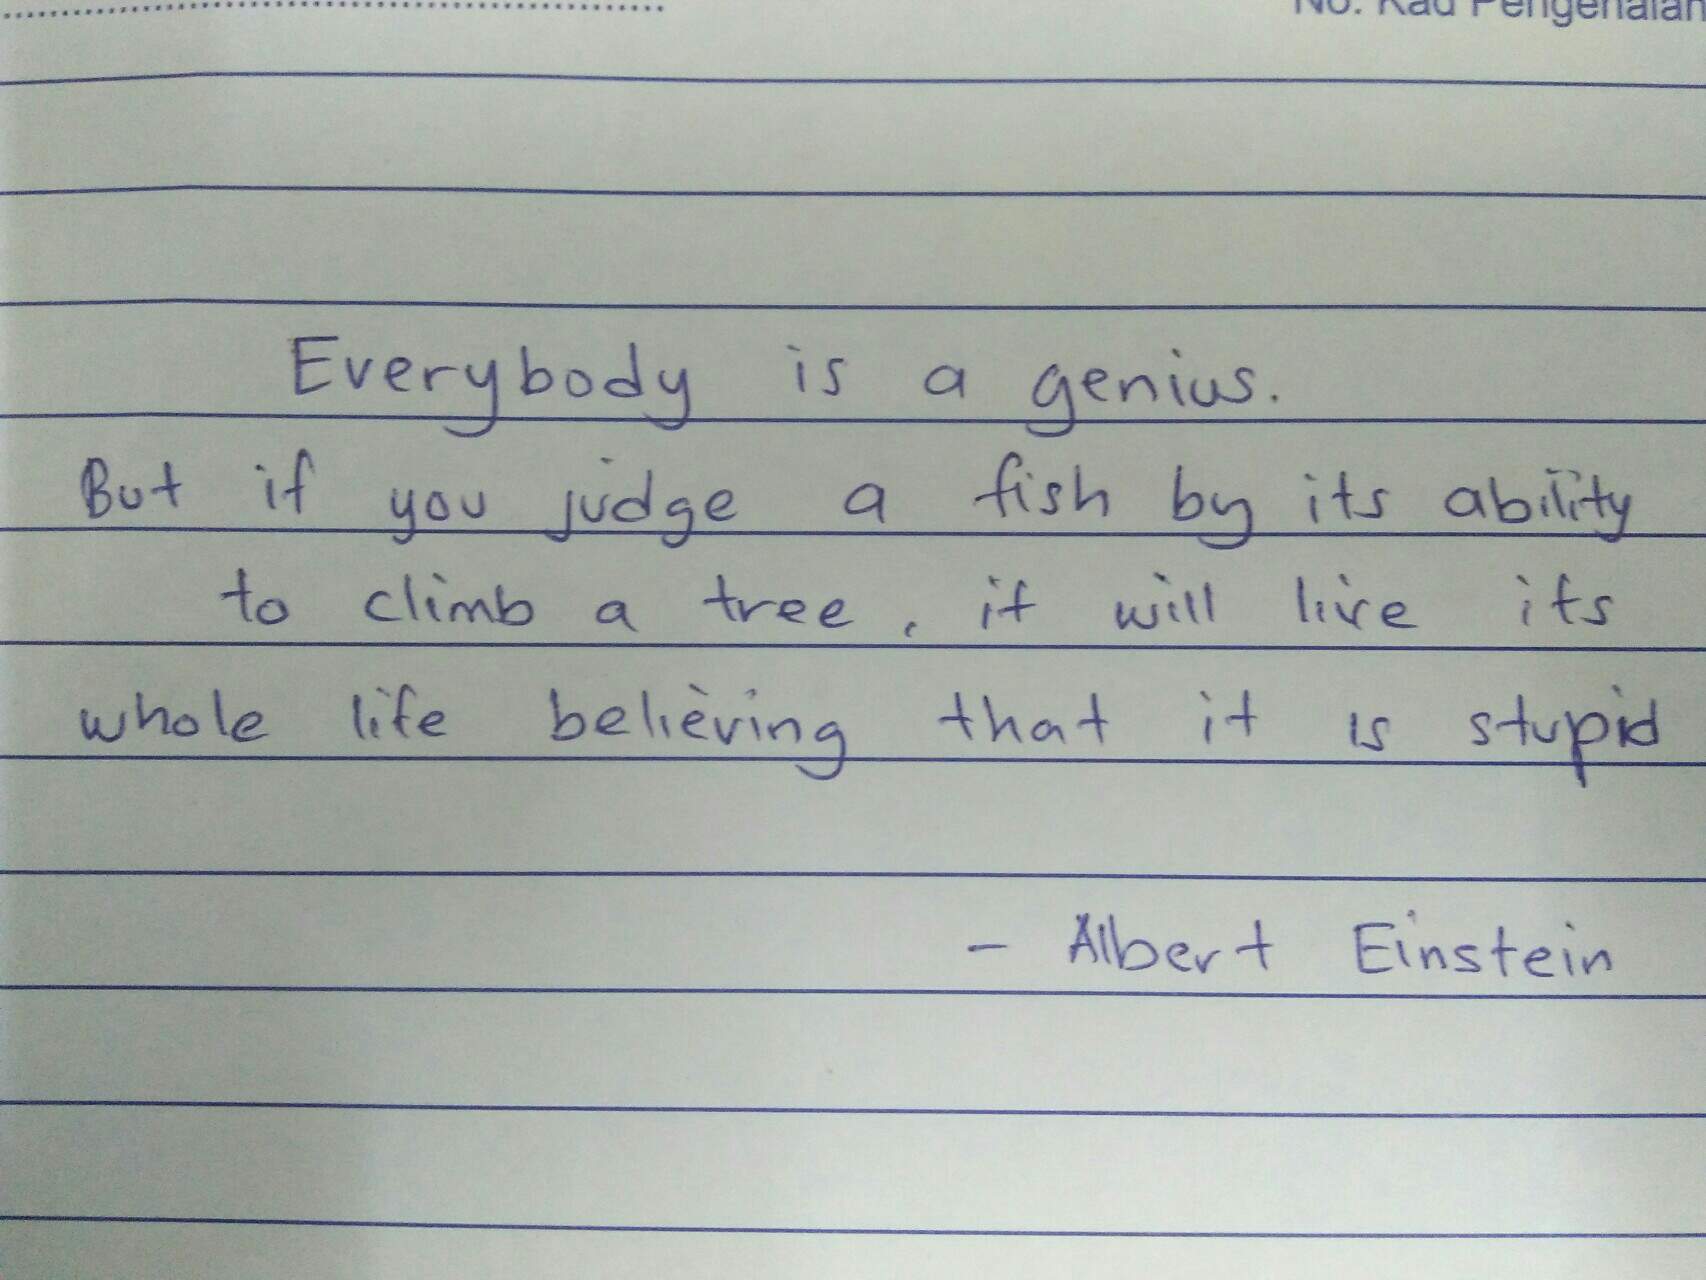 No. Kad Pengenalan
Everybody is a genius.
But if you judge a fish by its ability
to climb a tree, it will live its
whole life believing that it is stupid
- Albert Einstein